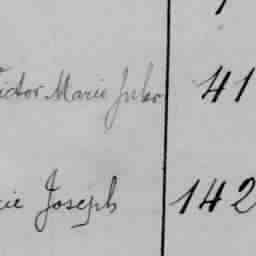 Victor Marie Jules 41
ie Joseph 142